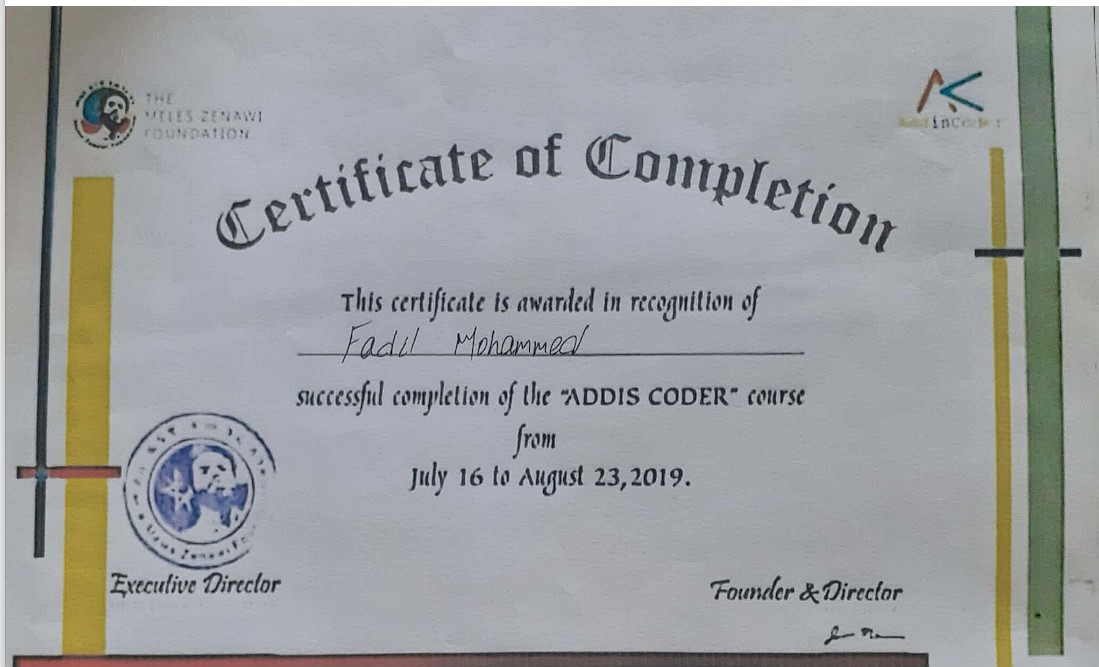 THE
MELES ZENAWI
FOUNDATION
Certificate of Completion
This certificate is awarded in recognition of
Fadil Mohammed
successful completion of the "ADDIS CODER" course
from
July 16 to August 23,2019.
Executive Director
Founder & Director